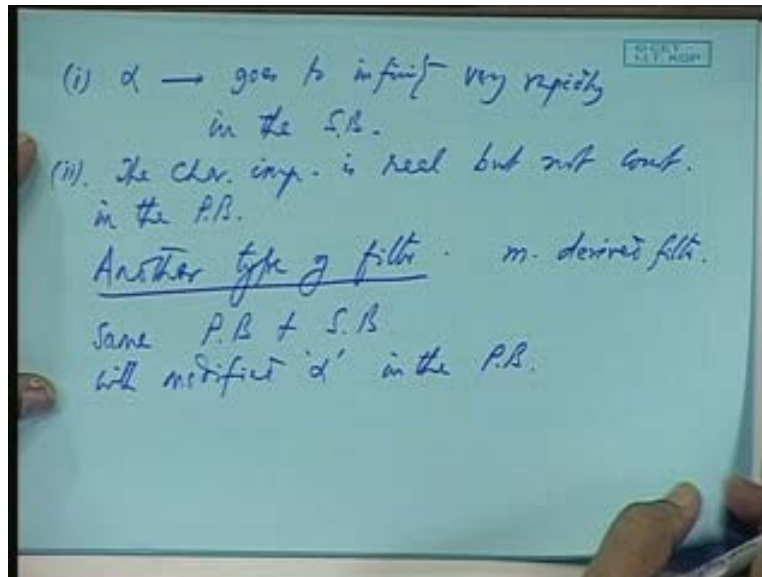 (i) α → goes to infinity very rapidly
in the S.B.
(ii). The char. imp. is real but not const.
in the P.B.
Another type of filter. m-derived filt.
Same P.B + S.B
with modified 'α' in the P.B.
I.I.T. KGP